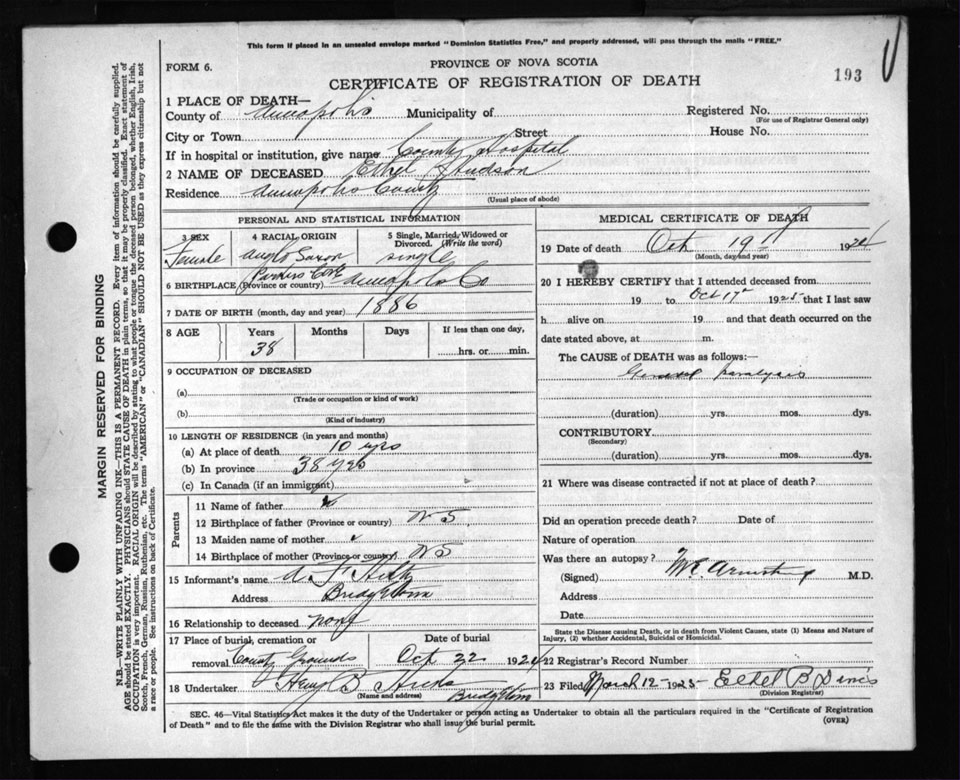 This form if placed in an unsealed envelope marked "Dominion Statistics Free," and properly addressed, will pass through the mails "FREE."
FORM 6.
PROVINCE OF NOVA SCOTIA
CERTIFICATE OF REGISTRATION OF DEATH
193
1 PLACE OF DEATH—
County of Annapolis Municipality of Registered No.
(For use of Registrar General only)
City or Town Street House No.
If in hospital or institution, give name County Hospital
2 NAME OF DECEASED Ethel Hudson
Residence Annapolis County
(Usual place of abode)
PERSONAL AND STATISTICAL INFORMATION
3 SEX 4 RACIAL ORIGIN 5 Single, Married, Widowed or Divorced. (Write the word)
Female Anglo Saxon Single
Parkers Cove
6 BIRTHPLACE (Province or country) Annapolis Co
7 DATE OF BIRTH (month, day and year) 1886
8 AGE Years Months Days If less than one day,
38 hrs. or min.
9 OCCUPATION OF DECEASED
(a)
(Trade or occupation or kind of work)
(b)
(Kind of industry)
10 LENGTH OF RESIDENCE (in years and months)
(a) At place of death 10 yrs
(b) In province 38 yrs
(c) In Canada (if an immigrant)
Parents
11 Name of father
12 Birthplace of father (Province or country) N S
13 Maiden name of mother
14 Birthplace of mother (Province or country) N S
15 Informant's name A F
Address Bridgetown
16 Relationship to deceased none
17 Place of burial, cremation or Date of burial
removal County Grounds Oct 22 1924
18 Undertaker B Bridgetown
(Name and address)
MEDICAL CERTIFICATE OF DEATH
19 Date of death Oct 19 1924
(Month, day and year)
20 I HEREBY CERTIFY that I attended deceased from
19 to Oct 17 1925 that I last saw
h alive on 19 and that death occurred on the
date stated above, at m.
The CAUSE of DEATH was as follows:—
General paralysis
(duration) yrs. mos. dys.
CONTRIBUTORY
(Secondary)
(duration) yrs. mos. dys.
21 Where was disease contracted if not at place of death?
Did an operation precede death? Date of
Nature of operation
Was there an autopsy?
(Signed) Armstrong M.D.
Address
Date
State the Disease causing Death, or in death from Violent Causes, state (1) Means and Nature of
Injury, (2) whether Accidental, Suicidal or Homicidal.
22 Registrar's Record Number
23 Filed March 12 - 1925 Ethel B
(Division Registrar)
SEC. 46—Vital Statistics Act makes it the duty of the Undertaker or person acting as Undertaker to obtain all the particulars required in the "Certificate of Registration
of Death" and to file the same with the Division Registrar who shall issue the burial permit.
(OVER)
MARGIN RESERVED FOR BINDING
N.B.—WRITE PLAINLY WITH UNFADING INK—THIS IS A PERMANENT RECORD. Every item of information should be carefully supplied.
AGE should be stated EXACTLY. PHYSICIANS should STATE CAUSE OF DEATH in plain terms, so that it may be properly classified. Exact statement of
OCCUPATION is very important. RACIAL ORIGIN will be described by stating to what people or tongue the deceased person belonged, whether English, Irish,
Scotch, French, German, Russian, Ruthenian, etc. The terms "AMERICAN" or "CANADIAN" SHOULD NOT BE USED as they express citizenship but not
a race or people. See instructions on back of Certificate.